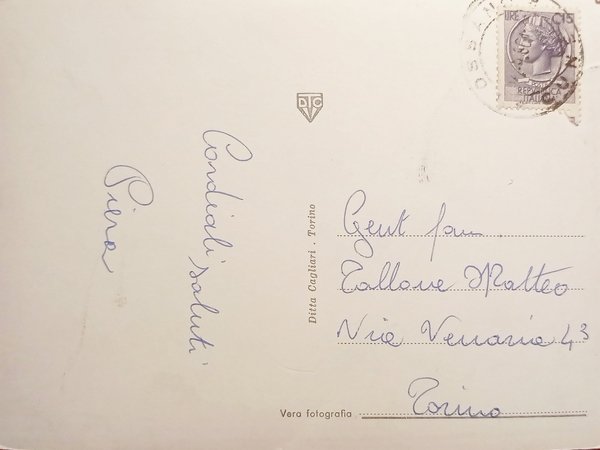 LIRE 15
REPUBBLICA
ITALIANA
DTC
Cordiali saluti
Piera
Ditta Cagliari . Torino
Gent fam
Tallone Matteo
Via Venaria 43
Torino
Vera fotografia